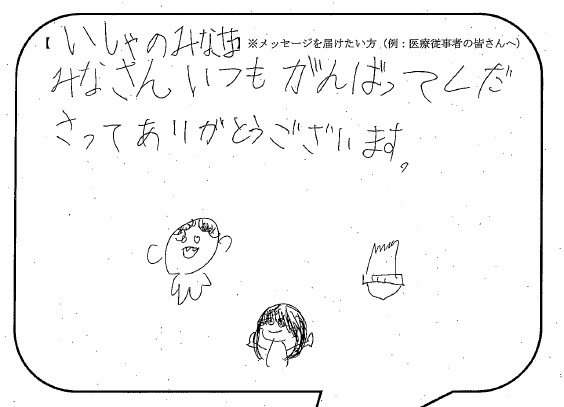 【 いしゃのみな ※メッセージを届けたい方（例：医療従事者の皆さんへ）
みなさんいつもがんばってくだ
さってありがとうございます。